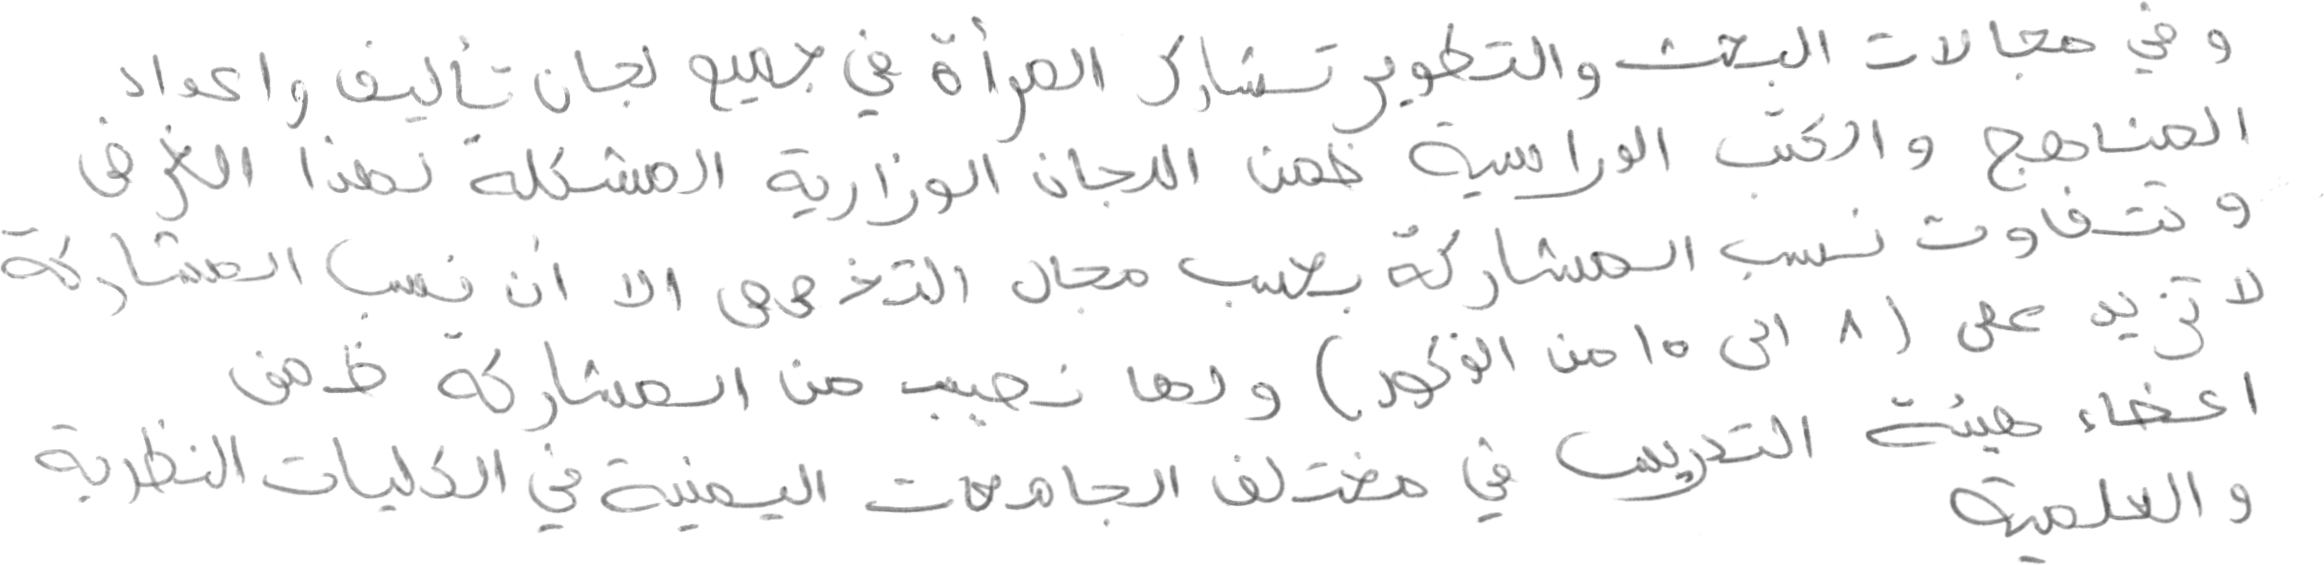 وفي مجالات البحث والتطوير تشارك المرأة في جميع لجان تأليف واعداد
المناهج والكتب الدراسية ضمن اللجان الوزارية المشكلة لهذا الغرض
وتتفاوت نسب المشاركة بحسب مجال التخصص الا أن نسب المشاركة
لا تزيد على (٨ الى ١٥ من الذكور) ولها نصيب من المشاركة ضمن
اعضاء هيئة التدريس في مختلف الجامعات اليمنية في الكليات النظرية
والعلمية